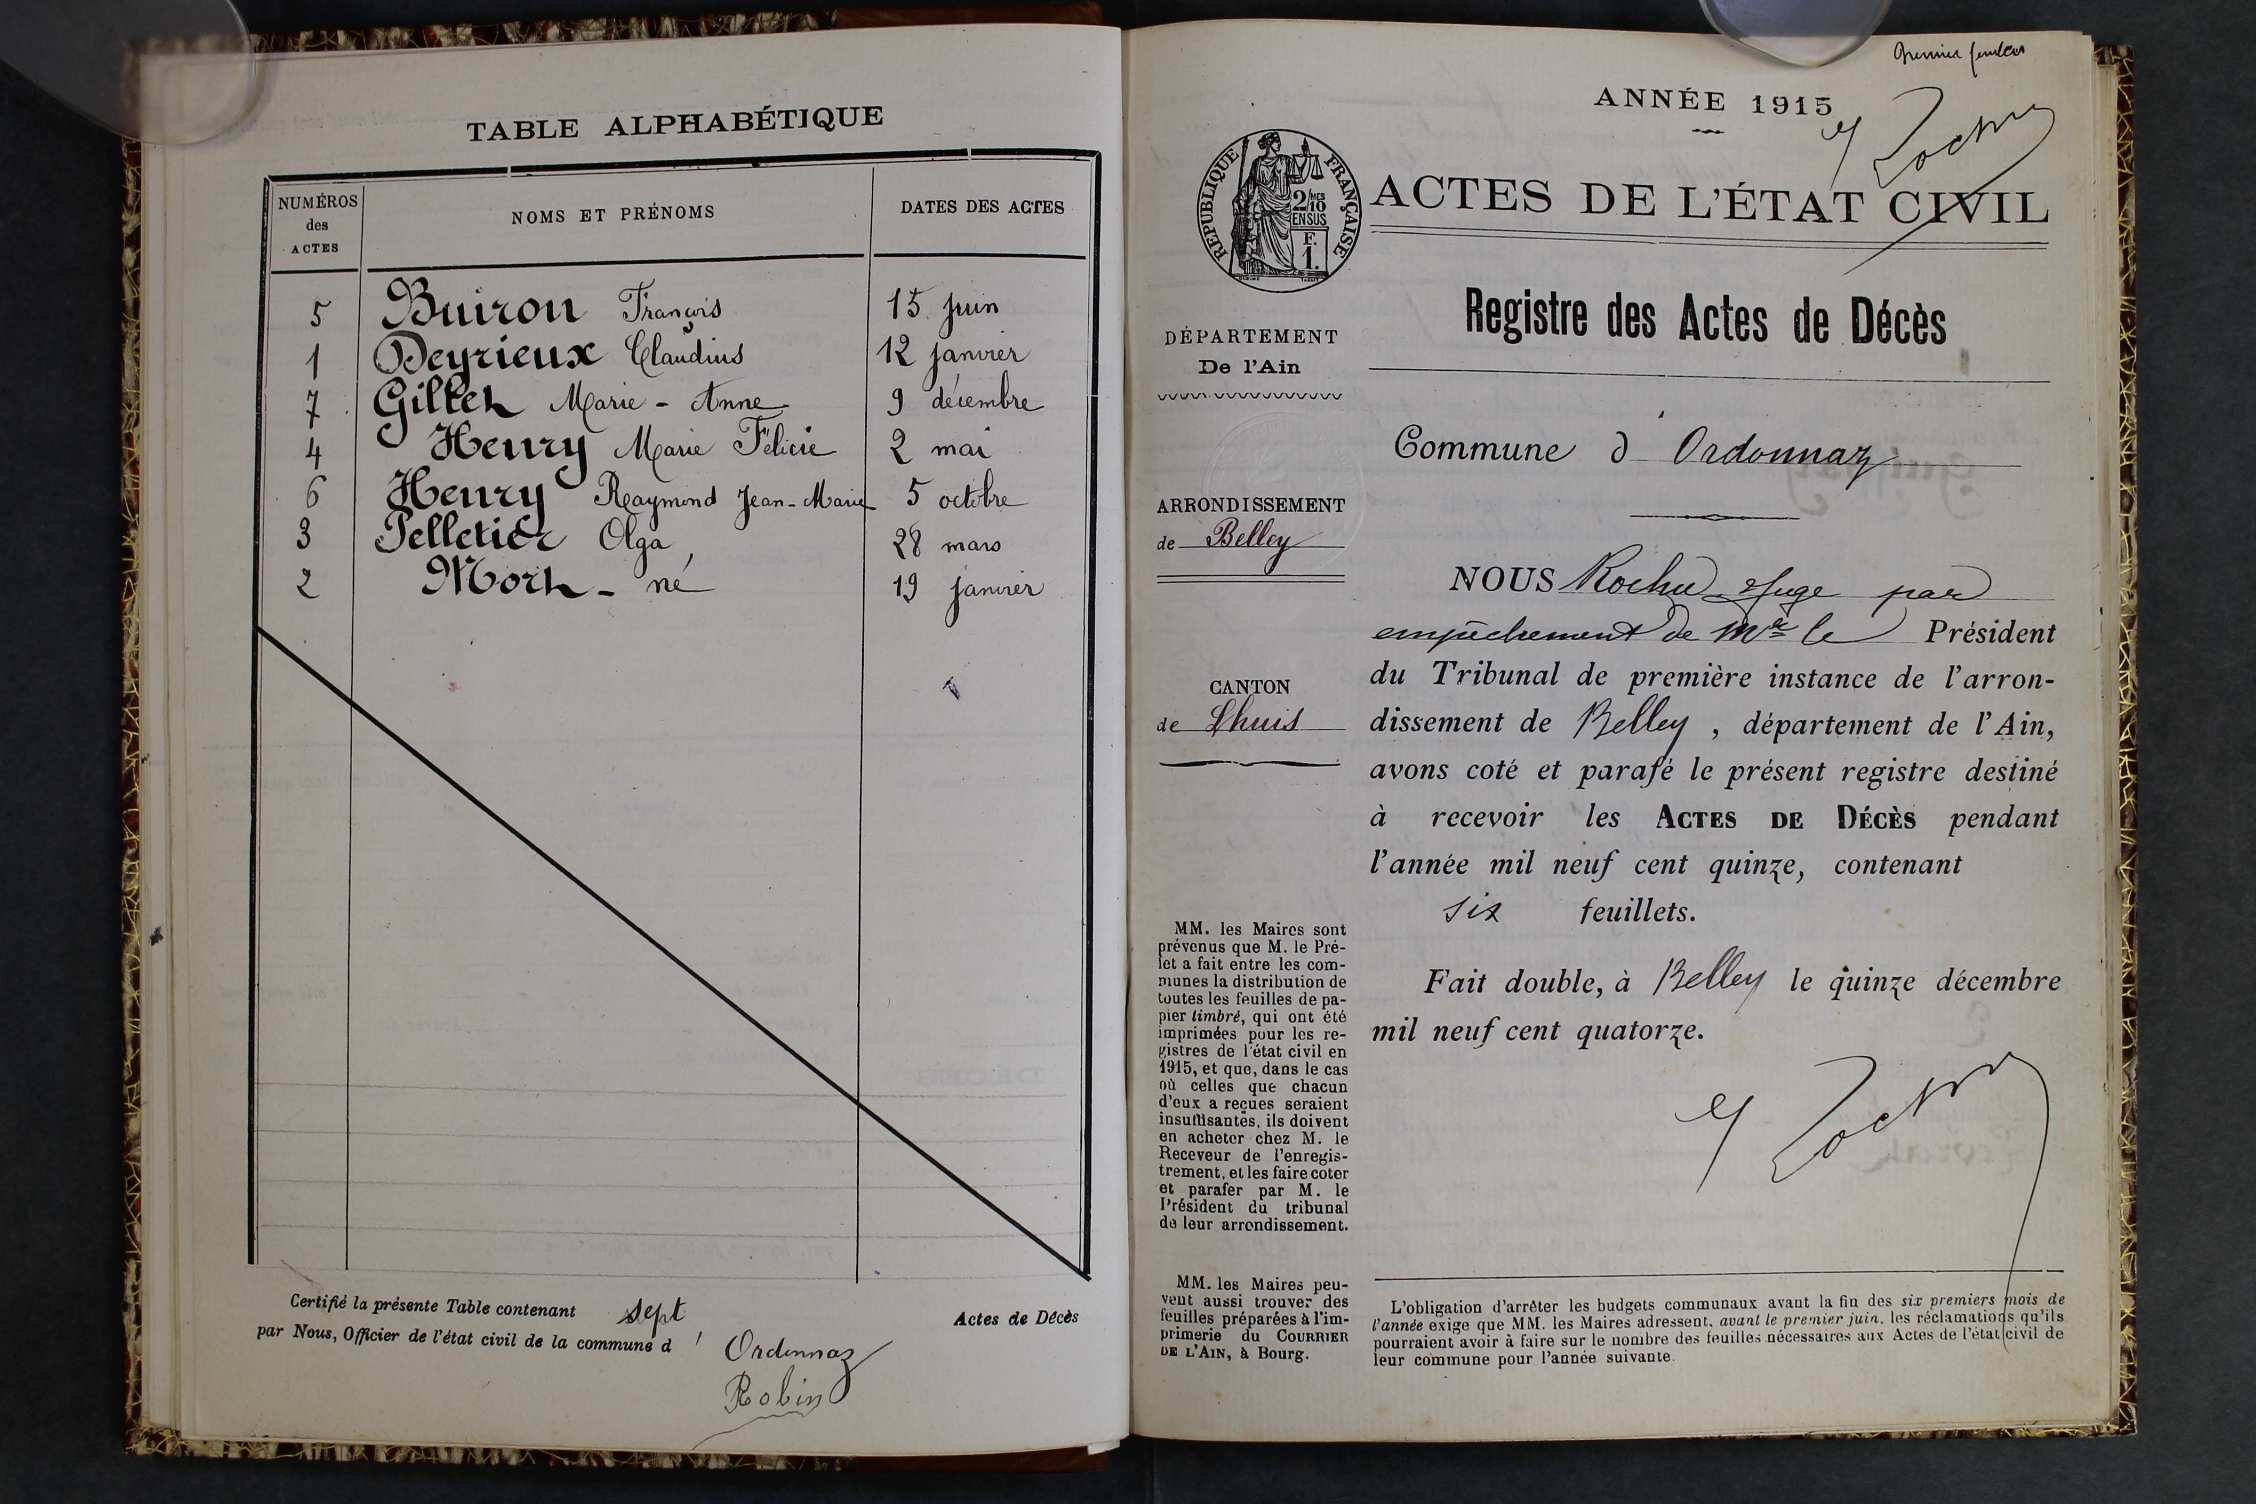 TABLE ALPHABÉTIQUE
NUMÉROS
des
ACTES
NOMS ET PRÉNOMS
DATES DES ACTES
5 Buiron François 15 juin
1 Deyrieux Claudius 12 janvier
7 Gillet Marie - Anne 9 décembre
4 Henry Marie Félicie 2 mai
6 Henry Raymond Jean-Marie 5 octobre
3 Pelletier Olga 28 mars
2 Mort - né 19 janvier
Certifié la présente Table contenant sept Actes de Décès
par Nous, Officier de l'état civil de la commune d' Ordonnaz
Robin
Premier feuillet
ANNÉE 1915
ACTES DE L'ÉTAT CIVIL
RÉPUBLIQUE FRANÇAISE
2/10 MES
EN SUS
F.
1.
Registre des Actes de Décès
DÉPARTEMENT
De l'Ain
Commune d' Ordonnaz
ARRONDISSEMENT
de Belley
CANTON
de Lhuis
NOUS Rochu Juge par
empêchement de Mr le Président
du Tribunal de première instance de l'arron-
dissement de Belley, département de l'Ain,
avons coté et parafé le présent registre destiné
à recevoir les ACTES DE DÉCÈS pendant
l'année mil neuf cent quinze, contenant
six feuillets.
Fait double, à Belley le quinze décembre
mil neuf cent quatorze.
MM. les Maires sont
prévenus que M. le Pré-
fet a fait entre les com-
munes la distribution de
toutes les feuilles de pa-
pier timbré, qui ont été
imprimées pour les re-
gistres de l'état civil en
1915, et que, dans le cas
où celles que chacun
d'eux a reçues seraient
insuffisantes, ils doivent
en acheter chez M. le
Receveur de l'enregis-
trement, et les faire coter
et parafer par M. le
Président du tribunal
de leur arrondissement.
MM. les Maires peu-
vent aussi trouver des
feuilles préparées à l'im-
primerie du COURRIER
DE L'AIN, à Bourg.
L'obligation d'arrêter les budgets communaux avant la fin des six premiers mois de
l'année exige que MM. les Maires adressent, avant le premier juin, les réclamations qu'ils
pourraient avoir à faire sur le nombre des feuilles nécessaires aux Actes de l'état civil de
leur commune pour l'année suivante.